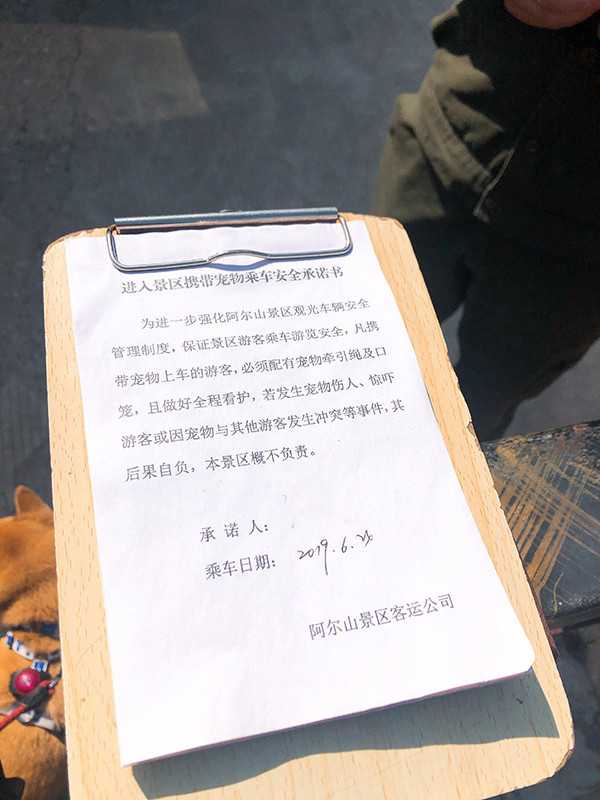 进入景区携带宠物乘车安全承诺书
为进一步强化阿尔山景区观光车辆安全
管理制度，保证景区游客乘车游览安全，凡携
带宠物上车的游客，必须配有宠物牵引绳及口
笼，且做好全程看护，若发生宠物伤人、惊吓
游客或因宠物与其他游客发生冲突等事件，其
后果自负，本景区概不负责。
承 诺 人：
乘车日期： 2019.6.
阿尔山景区客运公司